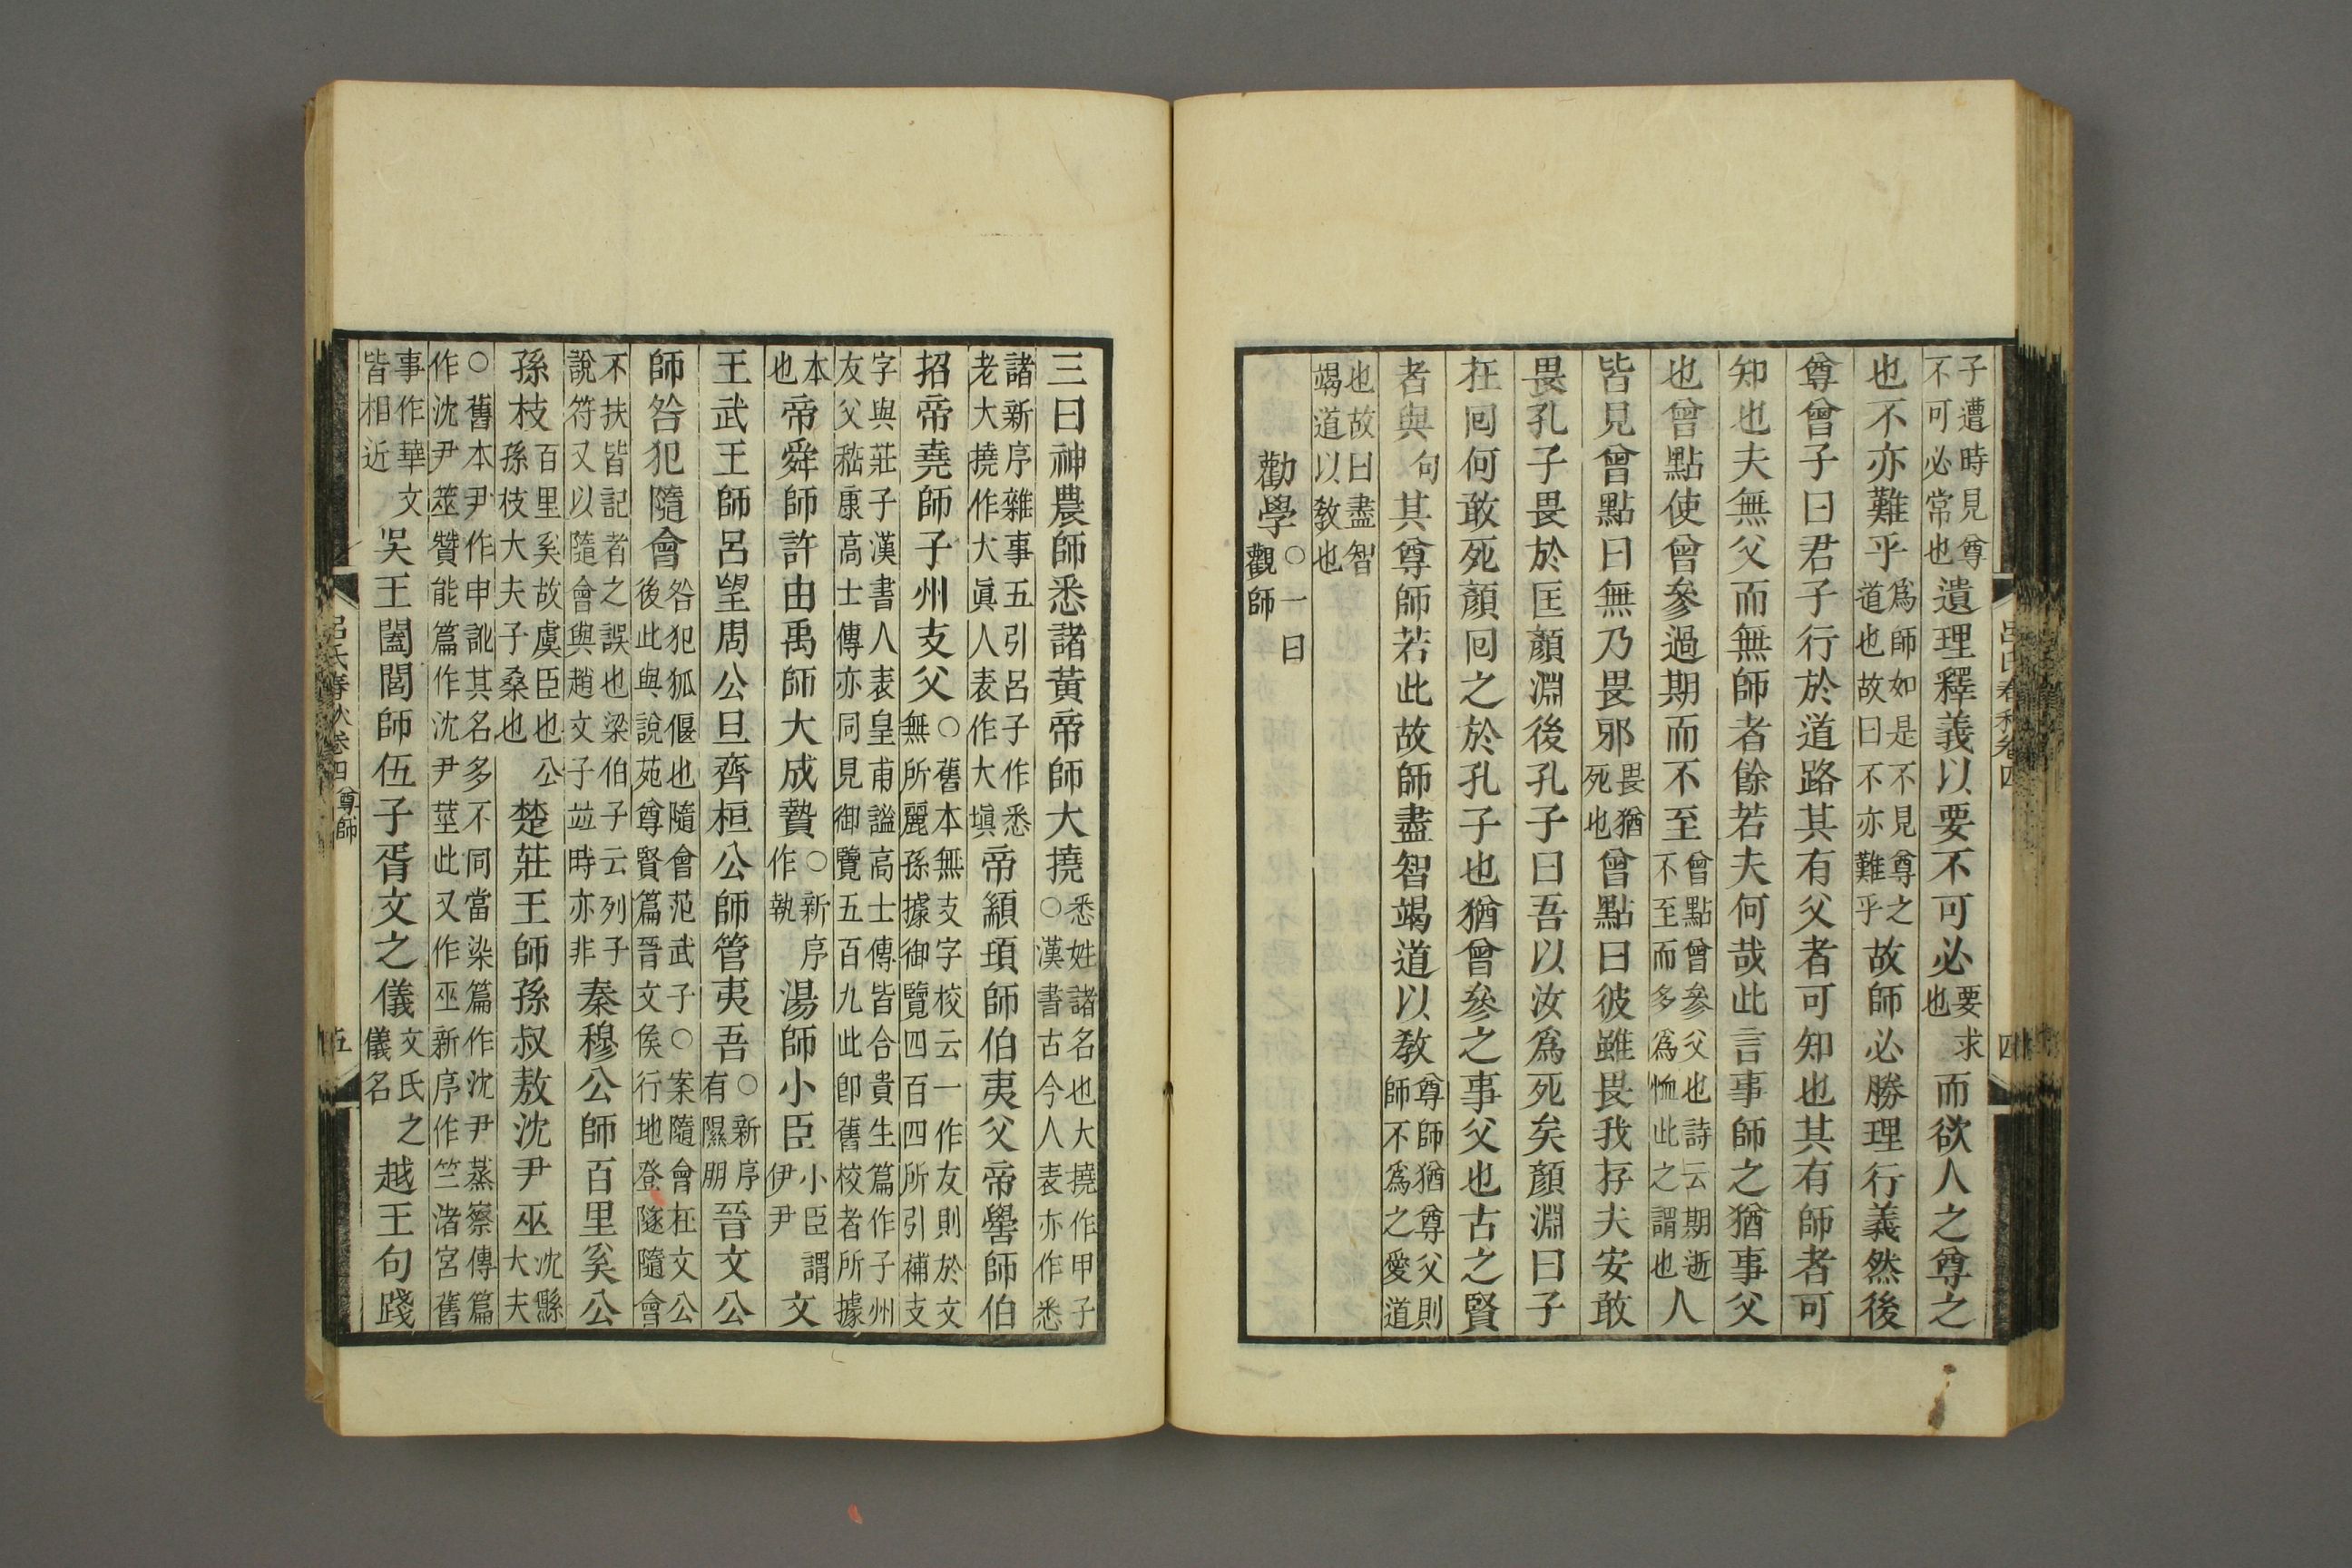 子遭時見尊不可必常也遺理釋義以要不可必要求也而欲人之尊之
也不亦難乎爲師如是不見尊之道也故曰不亦難乎故師必勝理行義然後
尊曾子曰君子行於道路其有父者可知也其有師者可
知也夫無父而無師者餘若夫何哉此言事師之猶事父
也曾點使曾參過期而不至曾點曾參父也詩云期逝不至而多爲恤此之謂也人
皆見曾點曰無乃畏邪畏猶死也曾點曰彼雖畏我存夫安敢
畏孔子畏於匡顏淵後孔子曰吾以汝爲死矣顏淵曰子
在回何敢死顏回之於孔子也猶曾參之事父也古之賢
者與句其尊師若此故師盡智竭道以敎尊師猶尊父則師不爲之愛道
也故曰盡智竭道以敎也
勸學○一曰觀師
呂氏春秋卷四
四
三曰神農師悉諸黃帝師大撓悉姓諸名也大撓作甲子○漢書古今人表亦作悉
諸新序雜事五引呂子作悉老大撓作大眞人表作大塡帝顓頊師伯夷父帝嚳師伯
招帝堯師子州支父○舊本無支字校云一作友則於文無所麗孫據御覽四百四所引補支
字與莊子漢書人表皇甫謐高士傳皆合貴生篇作子州友父嵇康高士傳亦同見御覽五百九此卽舊校者所據
本也帝舜師許由禹師大成贄○新序作執湯師小臣小臣謂伊尹文
王武王師呂望周公旦齊桓公師管夷吾○新序有隰朋晉文公
師咎犯隨會咎犯狐偃也隨會范武子○案隨會在文公後此與說苑尊賢篇晉文侯行地登隧隨會
不扶皆記者之誤也梁伯子云列子說符又以隨會與趙文子竝時亦非秦穆公師百里奚公
孫枝百里奚故虞臣也公孫枝大夫子桑也楚莊王師孫叔敖沈尹巫沈縣大夫
○舊本尹作申訛其名多不同當染篇作沈尹蒸察傳篇作沈尹筮贊能篇作沈尹莖此又作巫新序作竺渚宮舊
事作華文皆相近吳王闔閭師伍子胥文之儀文氏之儀名越王句踐
呂氏春秋卷四尊師
五